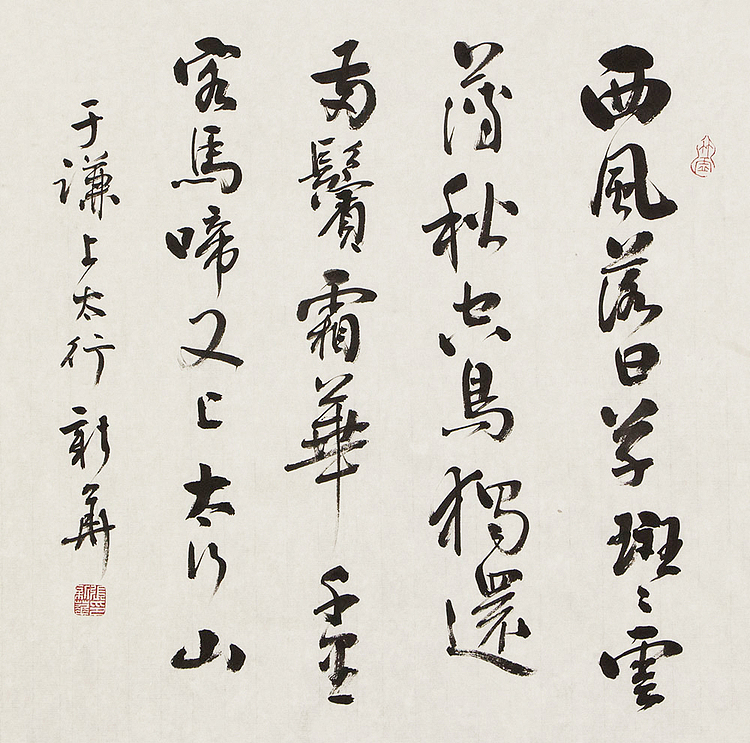 西風落日草斑〻雲
薄秋容鳥獨還
兩鬢霜華千里
客馬啼又上太行山
于謙上太行 新華